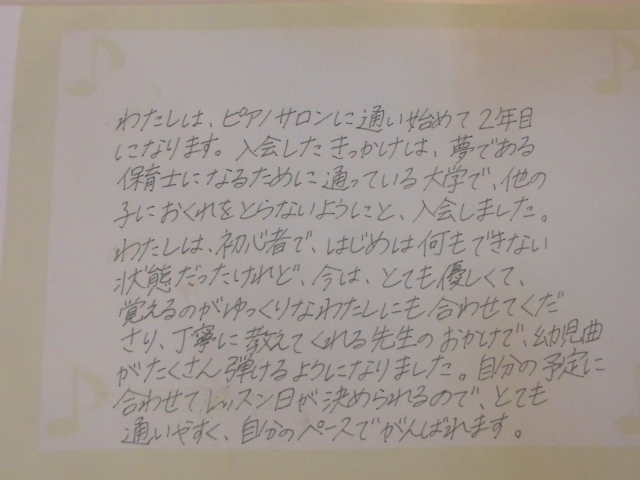 わたしは、ピアノサロンに通い始めて2年目
になります。入会したきっかけは、夢である
保育士になるために通っている大学で、他の
子におくれをとらないようにと、入会しました。
わたしは、初心者で、はじめは何もできない
状態だったけれど、今は、とても優しくて、
覚えるのがゆっくりなわたしにも合わせてくだ
さり、丁寧に教えてくれる先生のおかげで、幼児曲
がたくさん弾けるようになりました。自分の予定に
合わせてレッスン日が決められるので、とても
通いやすく、自分のペースでがんばれます。